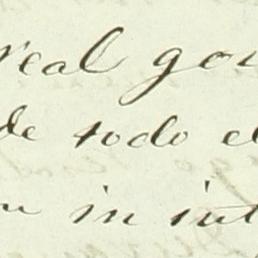 real go
de todo el
in int